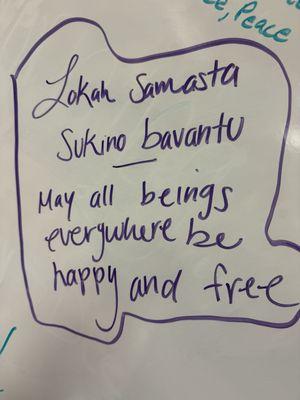 ee, Peace
Lokah Samasta
Sukino bavantu
May all beings
everywhere be
happy and free